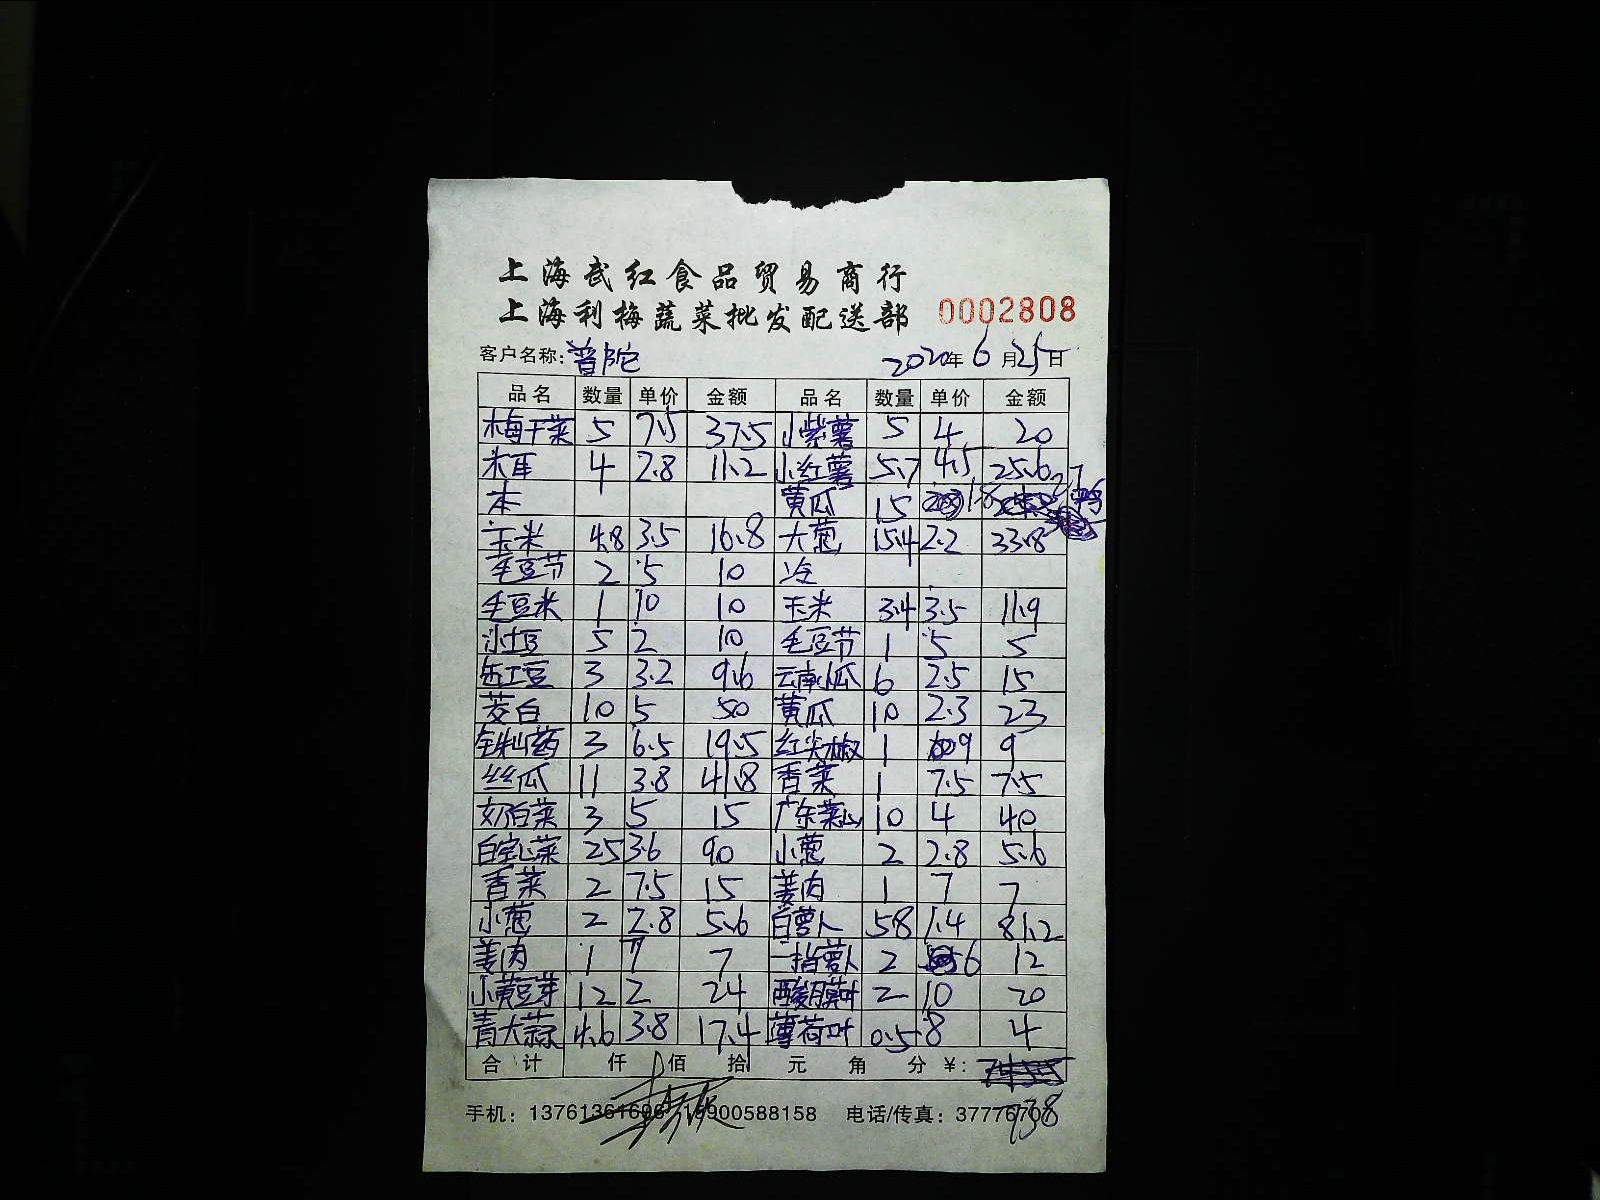 上海武红食品贸易商行
上海利梅蔬菜批发配送部 0002808
客户名称: 普陀 2020年6月25日
品名 数量 单价 金额 品名 数量 单价 金额
梅干菜 5 7.5 37.5 小紫薯 5 4 20
米耳 4 2.8 11.2 小红薯 5.7 4.5 25.6
本 黄瓜 15 1.8 27
玉米 4.8 3.5 16.8 大葱 15.4 2.2 33.8
毛豆节 2 5 10 冷
毛豆米 1 10 10 玉米 3.4 3.5 11.9
小土豆 5 2 10 毛豆节 1 5 5
缸豆 3 3.2 9.6 云南小瓜 6 2.5 15
茭白 10 5 50 黄瓜 10 2.3 23
铁山药 3 6.5 19.5 红尖椒 1 9 9
丝瓜 11 3.8 41.8 香菜 1 7.5 7.5
奶白菜 3 5 15 广东菜心 10 4 40
白宝心菜 25 3.6 90 小葱 2 2.8 5.6
香菜 2 7.5 15 姜肉 1 7 7
小葱 2 2.8 5.6 白萝卜 58 1.4 81.2
姜肉 1 7 7 一指萝卜 2 6 12
小黄豆芽 12 2 24 酸膜叶 2 10 20
青大蒜 4.6 3.8 17.4 薄荷叶 0.5 8 4
合计 仟 佰 拾 元 角 分 ¥:
手机: 13761361606 18900588158 电话/传真: 37776707
738